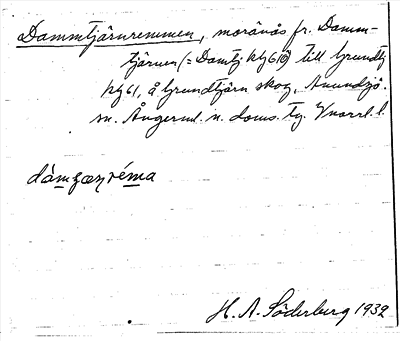 Dammtjärnremmen, moränås fr. Damm-
tjärnen (= Damtj. kbl 61ö) till Grundtj
kbl 61, å Grundtjärn skog, Anundsjö
sn. Ångerml. n. doms. tg. Vnorrl. l.
H. A. Söderberg 1932